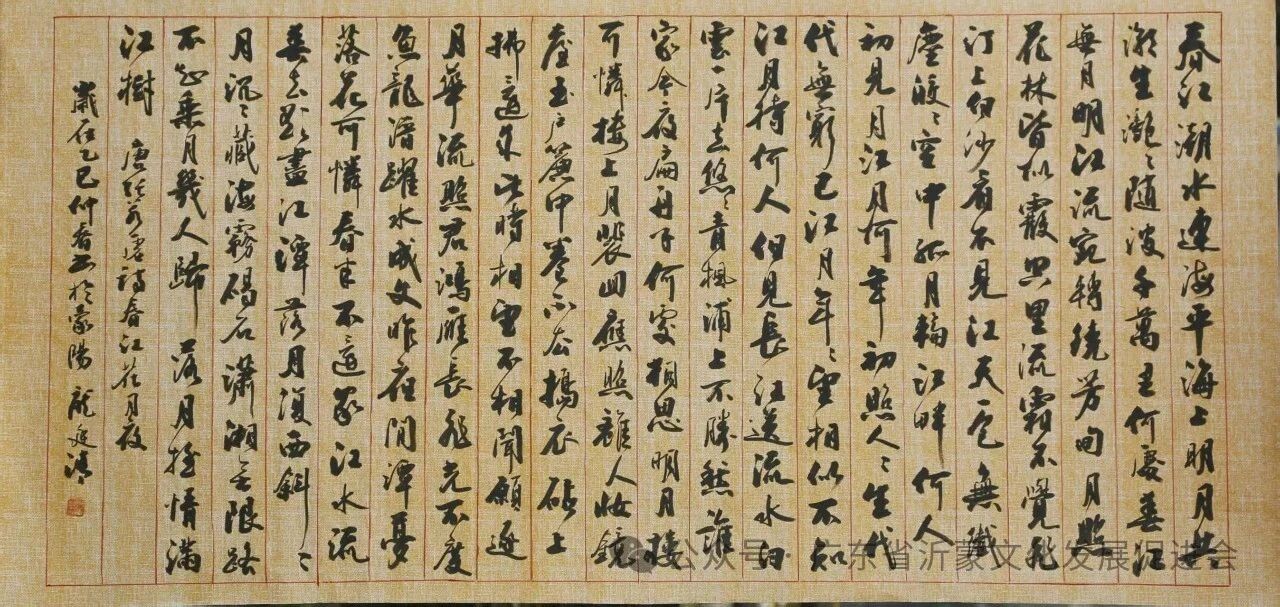 春江潮水連海平海上明月共
潮生灧〻随波千萬里何處春江
無月明江流宛轉繞芳甸月照
花林皆似霰空里流霜不覺飛
汀上白沙看不見江天一色無纖
塵皎〻空中孤月輪江畔何人
初見月江月何年初照人〻生代
代無窮已江月年〻望相似不知
江月待何人但見長江送流水白
雲一片去悠〻青楓浦上不勝愁誰
家今夜扁舟子何處相思明月樓
可憐樓上月裴回應照離人妝鏡
臺玉户簾中卷不去搗衣砧上
拂還来此時相望不相聞願逐
月華流照君鴻雁長飛光不度
魚龍潛躍水成文昨夜閒潭夢
落花可憐春半不還家江水流
春去欲盡江潭落月復西斜〻
月沉〻藏海霧碣石瀟湘無限路
不知乘月幾人歸落月摇情滿
江樹 唐張若虛詩春江花月夜
歲在乙巳仲春書於蒙陽 龐廷
公众号·广东省沂蒙文化发展促进会